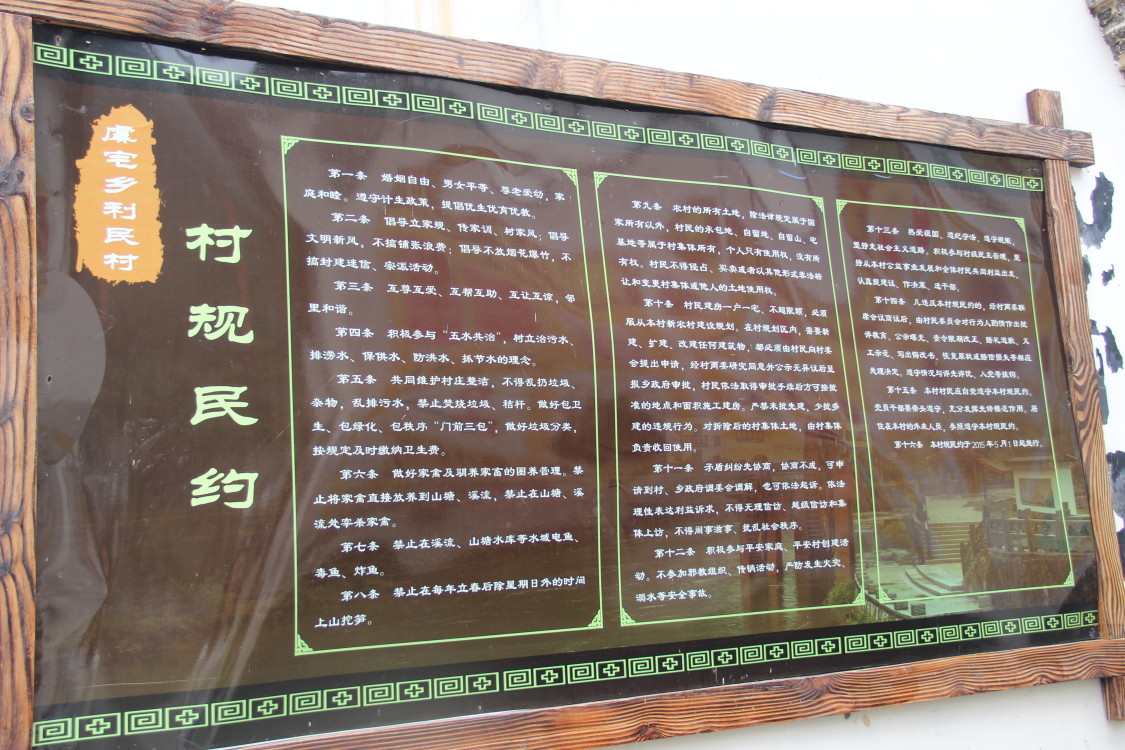 虞宅乡利民村
村规民约
第一条 婚姻自由、男女平等、尊老爱幼，家
庭和睦。遵守计生政策，提倡优生优育优教。
第二条 倡导立家规、传家训、树家风；倡导
文明新风，不搞铺张浪费；倡导不放烟花爆竹，不
搞封建迷信、宗派活动。
第三条 互尊互爱、互帮互助、互让互谅，邻
里和谐。
第四条 积极参与“五水共治”，树立治污水、
排涝水、保供水、防洪水、抓节水的理念。
第五条 共同维护村庄整洁，不得乱扔垃圾、
杂物，乱排污水，禁止焚烧垃圾、秸杆。做好包卫
生、包绿化、包秩序“门前三包”，做好垃圾分类，
按规定及时缴纳卫生费。
第六条 做好家禽及驯养家畜的圈养管理。禁
止将家禽直接放养到山塘、溪流，禁止在山塘、溪
流处宰杀家禽。
第七条 禁止在溪流、山塘水库等水域电鱼、
毒鱼、炸鱼。
第八条 禁止在每年立春后除星期日外的时间
上山挖笋。
第九条 农村的所有土地，除法律规定属于国
家所有以外，村民的承包地、自留地、自留山、宅
基地等属于村集体所有，个人只有使用权，没有所
有权。村民不得侵占、买卖或者以其他形式非法转
让和变更村集体或他人的土地使用权。
第十条 村民建房一户一宅、不超限额，必须
服从本村新农村建设规划，在村规划区内，需要新
建、扩建、改建任何建筑物，都必须由村民向村委
会提出申请，经村两委研究同意并公示无异议后呈
报乡政府审批，村民依法取得审批手续后方可按批
准的地点和面积施工建房。严禁未批先建，少批多
建的违规行为。对拆除后的村集体土地，由村集体
负责收回使用。
第十一条 矛盾纠纷先协商，协商不成，可申
请到村、乡政府调委会调解，也可依法起诉。依法
理性表达利益诉求，不得无理信访、越级信访和集
体上访，不得闹事滋事、扰乱社会秩序。
第十二条 积极参与平安家庭、平安村创建活
动。不参加邪教组织、传销活动，严防发生火灾、
溺水等安全事故。
第十三条 热爱祖国，遵纪守法，遵守规则，
坚持走社会主义道路，积极参与村级民主管理，坚
持从本村公益事业发展和全体村民共同利益出发，
认真提建议、作决策、选干部。
第十四条 凡违反本村规民约的，经村两委联
席会议商议后，由村民委员会对行为人酌情作出批
评教育、公示曝光、责令限期改正、赔礼道歉、义
工示范、写出悔改书、恢复原状或赔偿损失等相应
处理决定，遵守情况与评先评优、入党等挂钩。
第十五条 本村村民应自觉遵守本村规民约。
党员干部要带头遵守，充分发挥先锋模范作用。居
住在本村的外来人员，参照遵守本村规民约。
第十六条 本村规民约于2015年5月1日起施行。